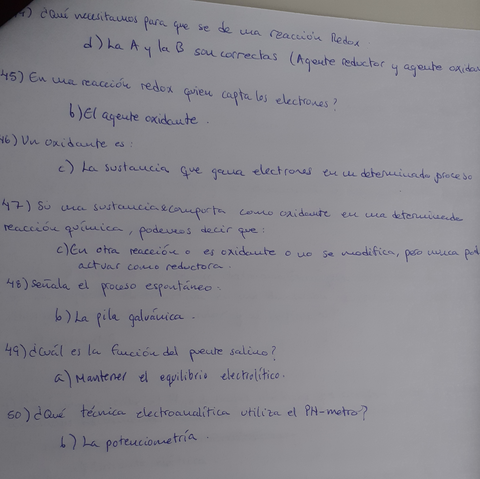 ) ¿Qué necesitamos para que se de una reacción Redox.
d) La A y la B son correctas (Agente reductor y agente oxidan
45) En una reacción redox quien capta los electrones?
b) El agente oxidante.
46) Un oxidante es:
c) La sustancia que gana electrones en un determinado proceso
47) Si una sustancia se comporta como oxidante en una determinada
reacción química, podemos decir que:
c) En otra reacción o es oxidante o no se modifica, pero nunca pod
actuar como reductora.
48) Señala el proceso espontáneo.
b) La pila galvánica.
49) ¿Cuál es la función del puente salino?
a) Mantener el equilibrio electrolítico.
50) ¿Qué técnica electroanalítica utiliza el PH-metro?
b) La potenciometría.